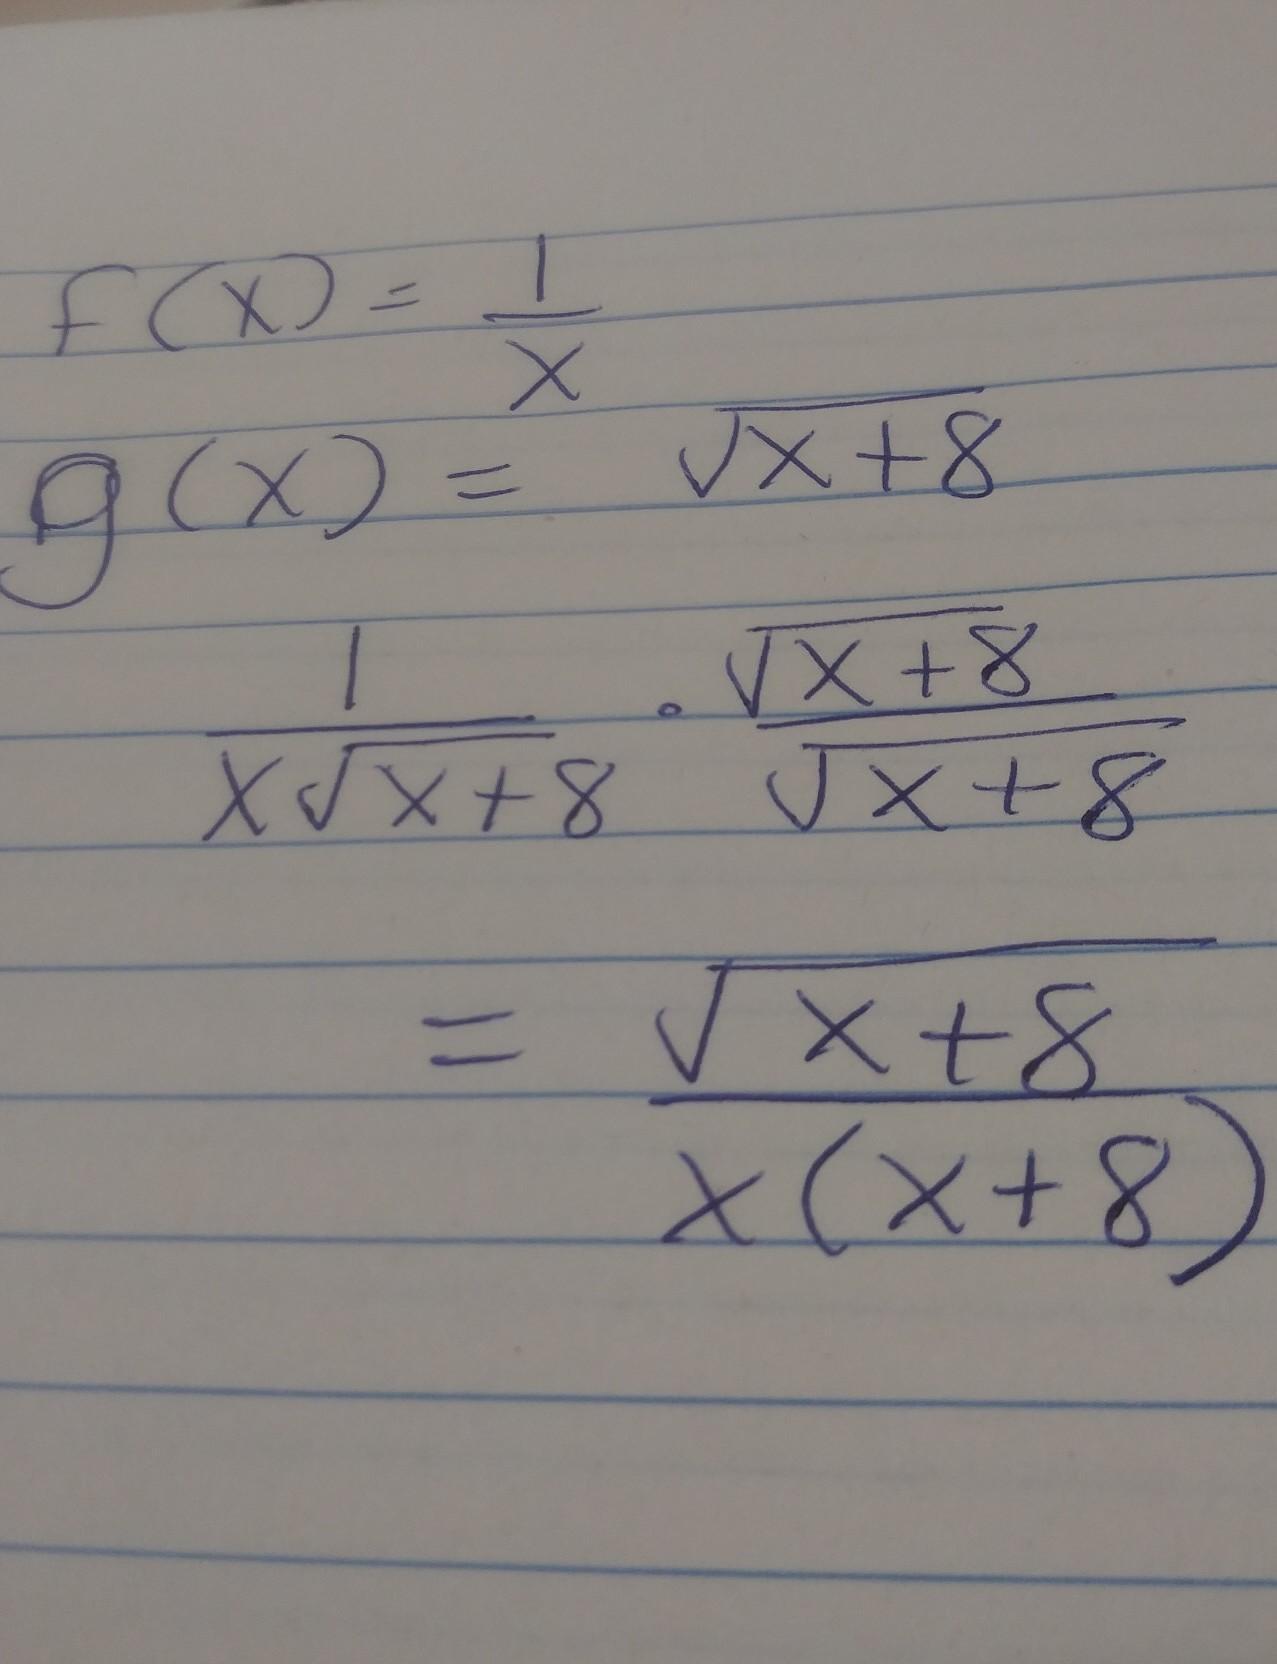 f(x) = 1/x
g(x) = √(x+8)
1/(x√(x+8)) · √(x+8)/√(x+8)
= √(x+8)/(x(x+8))